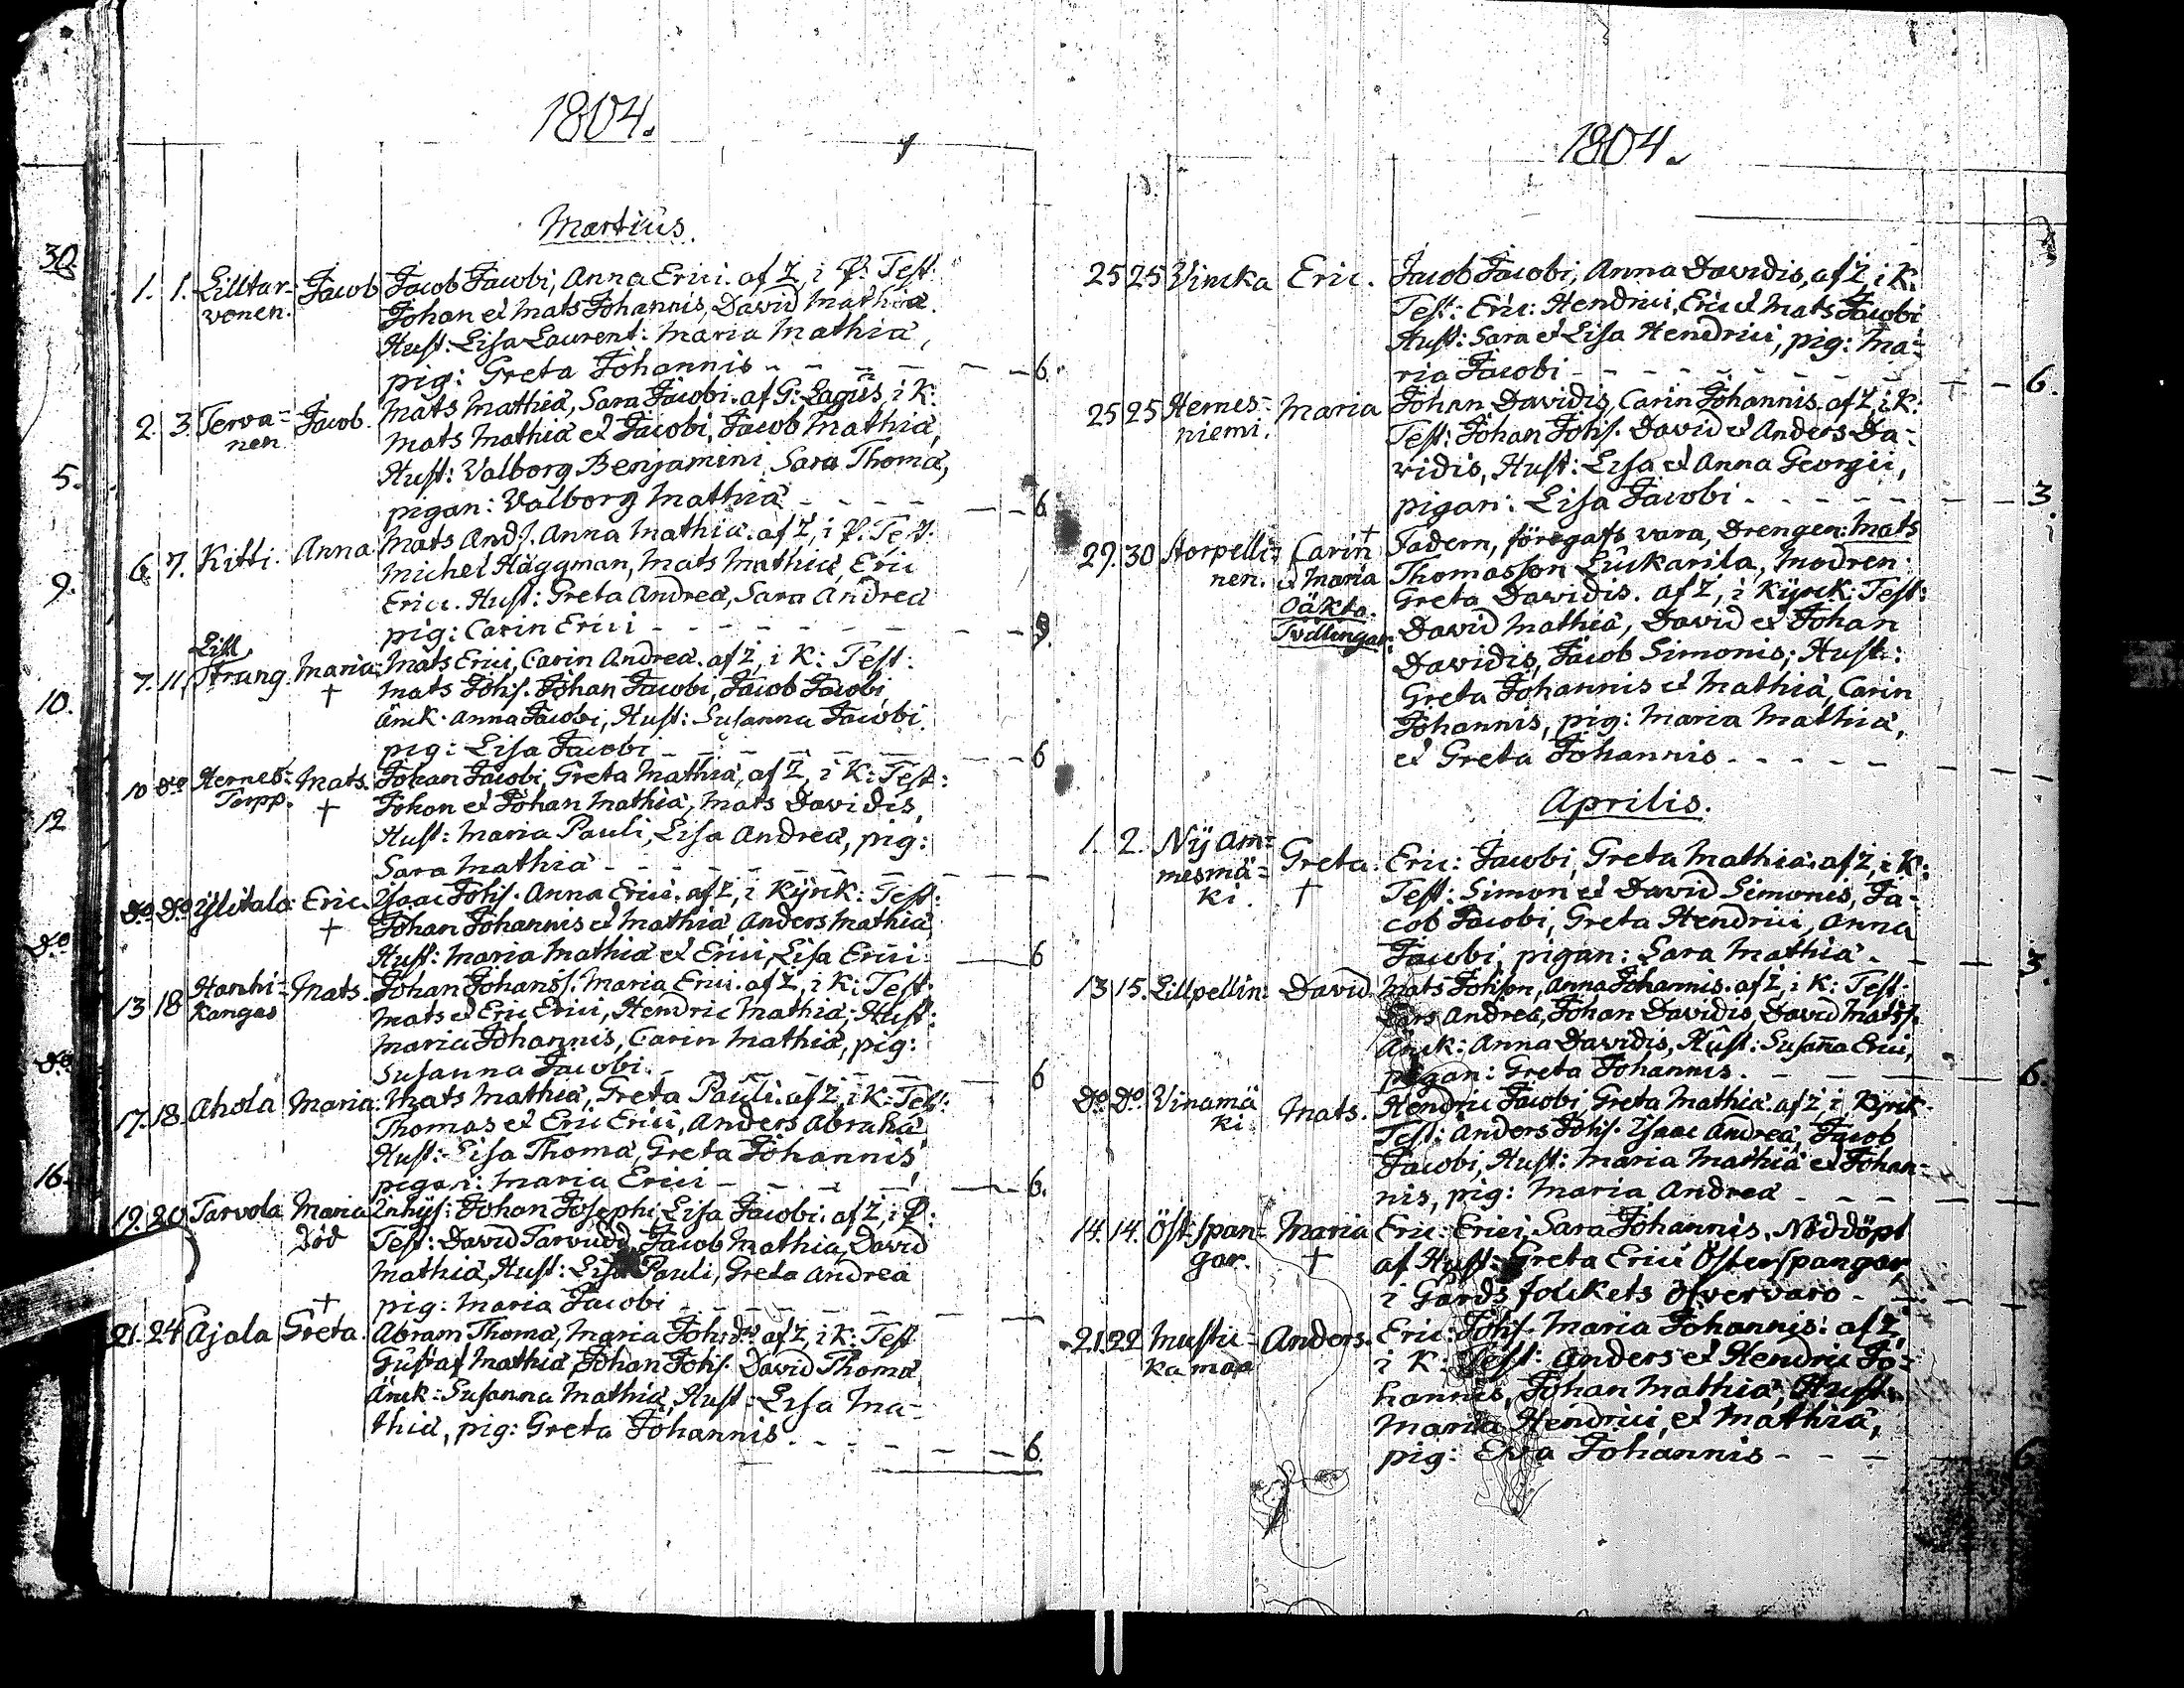 1804.
Martius.
30.
1. 1. Lilltar- Jacob Jacob Jacobi, Anna Erici. af Z, i P. Test:
vonen. Johan et Mats Johannis, David Mathiæ.
Hust: Lisa Laurent: Maria Mathiæ,
pig: Greta Johannis - - - - - - 6.
2. 3. Terva- Jacob. Mats Mathiæ, Sara Jacobi. af G: Lagus, i K:
nen. Mats Mathiæ et Jacobi, Jacob Mathiæ,
5. Hust: Valborg Benjamini, Sara Thomæ,
pigan: Valborg Mathiæ - - - - - - 6
6. 7. Kitti. Anna. Mats And:s. Anna Mathiæ. af Z, i P. Test:
9. Michel Häggman, Mats Mathiæ, Eric
Erici. Hust: Greta Andreæ, Sara Andreæ
pig: Carin Erici - - - - - -
Lill
7. 11. Strang. Maria. Mats Erici, Carin Andreæ. af Z, i K: Test:
10. † Mats Johs. Johan Jacobi, Jacob Jacobi
Änck. Anna Jacobi, Hust: Susanna Jacobi.
pig: Lisa Jacobi - - - - - - 6
10 do Hernes- Mats. Johan Jacobi, Greta Mathiæ, af Z, i K: Test:
Torpp. † Johan et Johan Mathiæ, Mats Davidis,
12 Hust: Maria Pauli, Lisa Andreæ, pig:
Sara Mathiæ - - - - - -
do. do Ylitalo Eric. Isaac Johs. Anna Erici. af Z, i Kyrk: Test:
† Johan Johannis et Mathiæ, Anders Mathiæ,
do Hust: Maria Mathiæ et Erici, Lisa Erici. 6
13 18 Hanhi- Mats. Johan Johanss. Maria Erici. af Z, i K: Test:
kangas Mats et Eric Erici, Hendric Mathiæ, Hust:
Maria Johannis, Carin Mathiæ, pig:
do. Susanna Jacobi. - - - - - - 6
17. 18. Ahola Maria. Mats Mathiæ, Greta Pauli. af Z, i K: Test:
Thomas et Eric Erici, Anders Abrahæ
Hust: Lisa Thomæ, Greta Johannis,
16. pigan: Maria Erici - - - - - - 6.
19. 20 Tarvola Maria Inhys: Johan Josephi, Lisa Jacobi. af Z, i P:
Död Test: David Tarvudd, Jacob Mathiæ, David
Mathiæ, Hust: Lisa Pauli, Greta Andreæ
† pig: Maria Jacobi - - - - - -
21. 24 Ajala Greta. Abram Thomæ, Maria Joh:dr af Z, i K: Test
Gustaf Mathiæ, Johan Johs. David Thomæ
Änck: Susanna Mathiæ, Hust: Lisa Ma-
thiæ, pig: Greta Johannis. - - - - - - 6.
1804.
25 25 Vincka Eric. Jacob Jacobi, Anna Davidis, af Z, i K.
Test: Eric: Hendrici, Eric et Mats Jacobi
Hust: Sara et Lisa Hendrici, pig: Ma-
ria Jacobi - - - - - - 6.
25 25 Hernes- Maria Johan Davidis, Carin Johannis. af Z, i K:
niemi. Test: Johan Johs. David et Anders Da-
vidis, Hust: Lisa et Anna Georgii,
pigan: Lisa Jacobi - - - - - - 3.
29. 30 Storpelli- Carin † Fadern, föregafs vara, Drengen: Mats
nen. et Maria Thomasson Luukarila, Modren:
Oäkta. Greta Davidis. af Z, i Kyrck: Test:
Tvillingar. David Mathiæ, David et Johan
Davidis, Jacob Simonis; Hust:
Greta Johannis et Mathiæ, Carin
Johannis, pig: Maria Mathiæ,
et Greta Johannis - - - - - -
Aprilis.
1. 2. Ny Am- Greta. Eric: Jacobi, Greta Mathiæ. af Z, i K:
mesmä- † Test: Simon et David Simonis, Ja-
ki. cob Jacobi, Greta Hendrici, Anna
Jacobi, pigan: Sara Mathiæ - - - 3.
13 15. Lillpellin: David Mats Johson, Anna Johannis. af Z, i K: Test:
Lars Andreæ, Johan Davidis, David Matss.
Änck: Anna Davidis, Hust: Susanna Erici,
pigan: Greta Johannis. - - - - 6.
do do Vinamä Mats. Hendric Jacobi, Greta Mathiæ. af Z, i Kyrck.
ki Test: Anders Johs. Isaac Andreæ, Jacob
Jacobi, Hust: Maria Mathiæ et Johan-
nis, pig: Maria Andreæ - - - - - -
14. 14. Öst:span- Maria Eric: Erici, Sara Johannis. Nöddöpt
gar. † af Hust: Greta Erici Österspangar,
i Gårds folckets öfvervaro - - - - -
21. 22 Mustic- Anders. Eric: Johs. Maria Johannis. af Z,
kamaa i K: Test: Anders et Hendric Jo-
hannis, Johan Mathiæ, Hust:
Maria Hendrici, et Mathiæ,
pig: Eva Johannis - - - 6